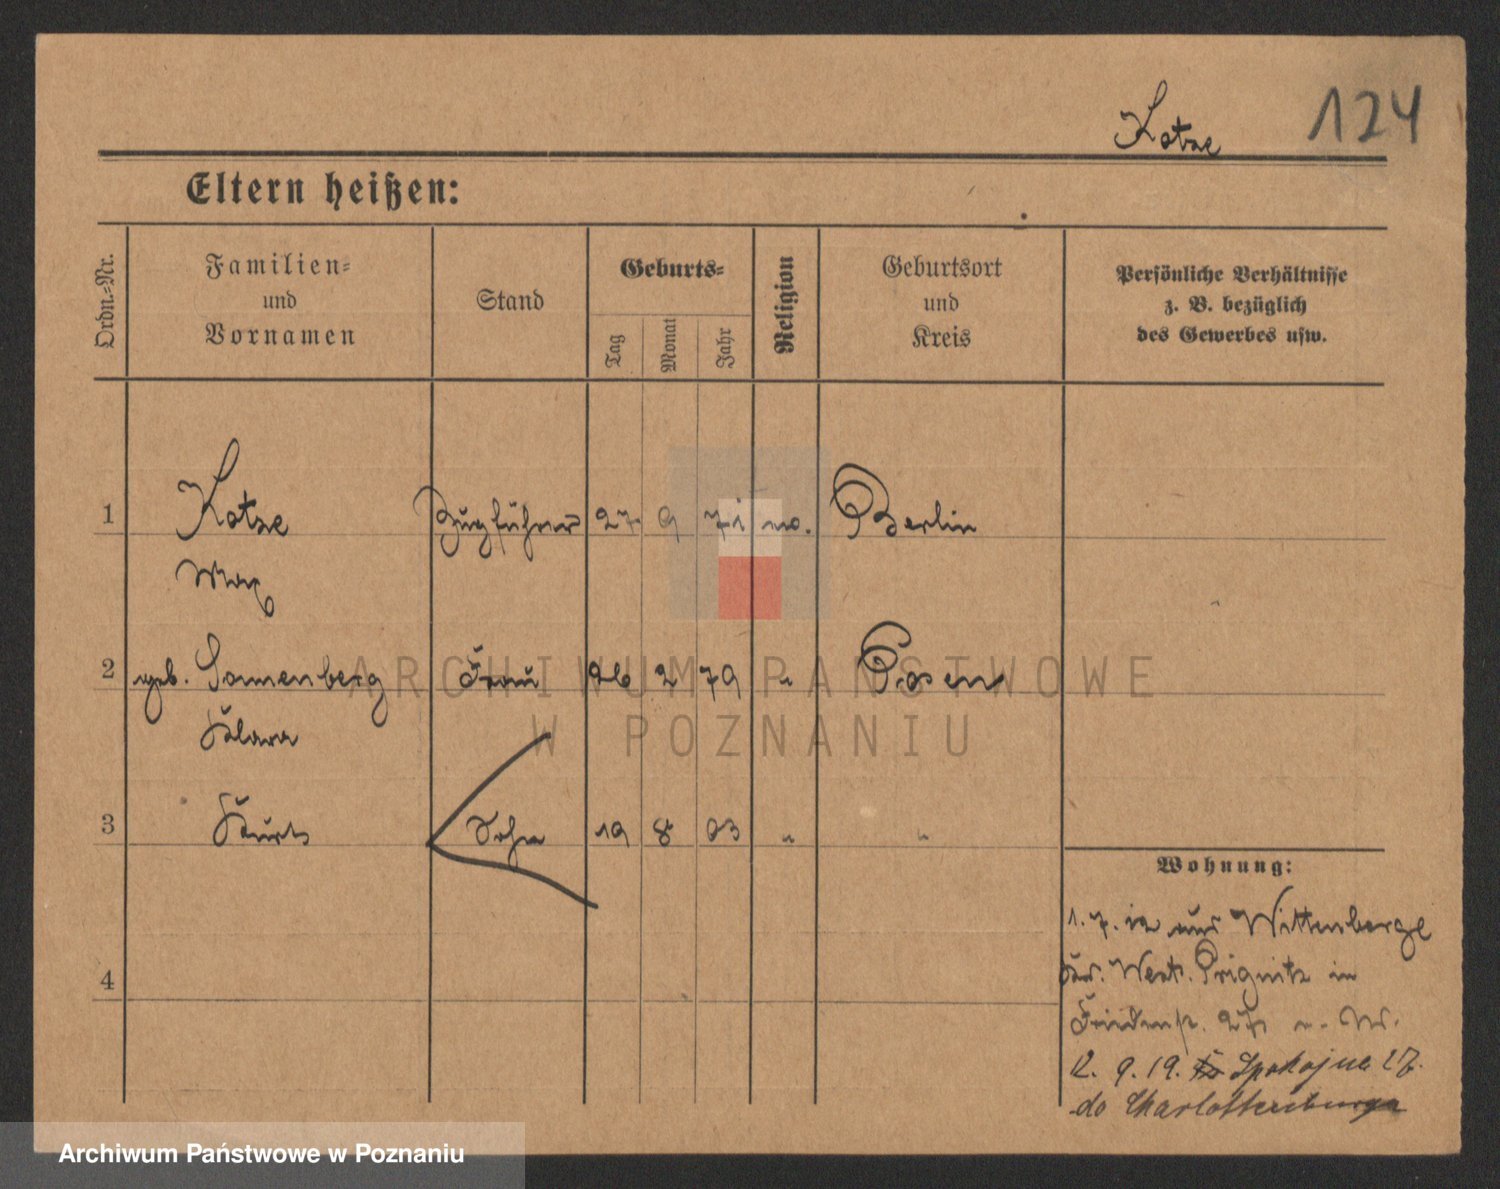 Kotze 124
Eltern heißen:
Ordn.-Nr.
Familien-
und
Vornamen
Stand
Geburts-
Tag
Monat
Jahr
Religion
Geburtsort
und
Kreis
Persönliche Verhältnisse
z. B. bezüglich
des Gewerbes usw.
1 Kotze Zugführer 27. 9 71 mo. Berlin
Max
2 geb. Sonnenberg Frau 26 2 79 " Posen
Klara
3 Kurt Sohn 19 8 03 " "
4
Wohnung:
1. 7. 12 aus Wittenberge
Kr. West. Prignitz in
Friedenstr. 27
12. 9. 19. Spokojna 27.
do Charlottenburga
ARCHIWUM PAŃSTWOWE
W POZNANIU
Archiwum Państwowe w Poznaniu